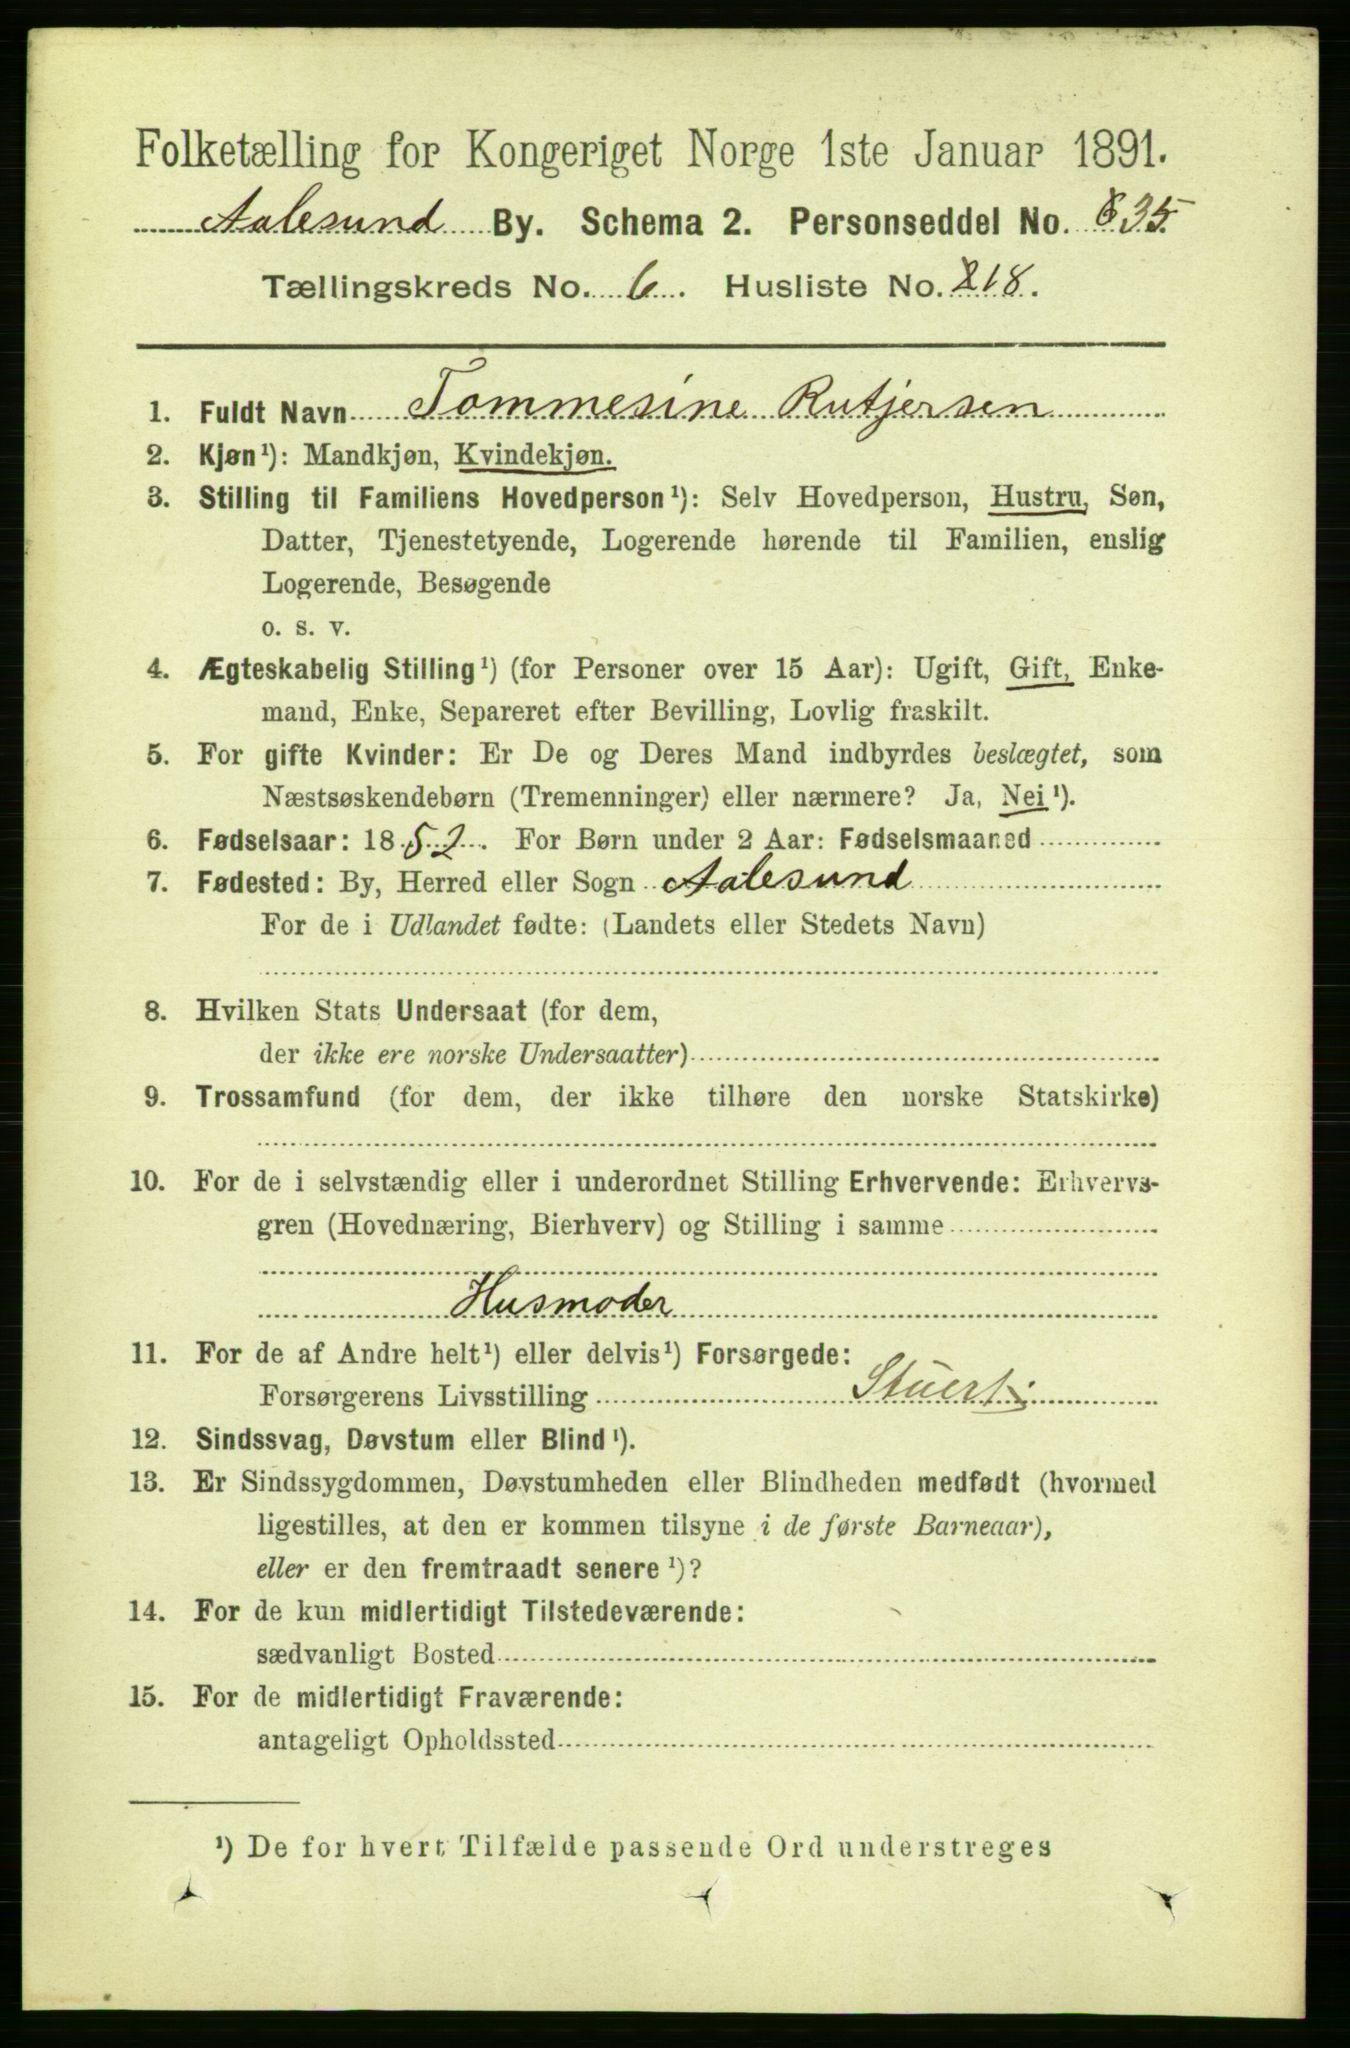 Folketælling for Kongeriget Norge 1ste Januar 1891.
Aalesund By. Schema 2. Personseddel No. 635
Tællingskreds No. 6. Husliste No. 218.
1. Fuldt Navn Tommesine Rutjersen
2. Kjøn¹): Mandkjøn, Kvindekjøn.
3. Stilling til Familiens Hovedperson¹): Selv Hovedperson, Hustru, Søn,
Datter, Tjenestetyende, Logerende hørende til Familien, enslig
Logerende, Besøgende
o. s. v.
4. Ægteskabelig Stilling¹) (for Personer over 15 Aar): Ugift, Gift, Enke-
mand, Enke, Separeret efter Bevilling, Lovlig fraskilt.
5. For gifte Kvinder: Er De og Deres Mand indbyrdes beslægtet, som
Næstsøskendebørn (Tremenninger) eller nærmere? Ja, Nei¹).
6. Fødselsaar: 1852. For Børn under 2 Aar: Fødselsmaaned
7. Fødested: By, Herred eller Sogn Aalesund
For de i Udlandet fødte: (Landets eller Stedets Navn)
8. Hvilken Stats Undersaat (for dem,
der ikke ere norske Undersaatter)
9. Trossamfund (for dem, der ikke tilhøre den norske Statskirke)
10. For de i selvstændig eller i underordnet Stilling Erhvervende: Erhvervs-
gren (Hovednæring, Bierhverv) og Stilling i samme
Husmoder
11. For de af Andre helt¹) eller delvis¹) Forsørgede:
Forsørgerens Livsstilling Stuert
12. Sindssvag, Døvstum eller Blind¹).
13. Er Sindssygdommen, Døvstumheden eller Blindheden medfødt (hvormed
ligestilles, at den er kommen tilsyne i de første Barneaar),
eller er den fremtraadt senere¹)?
14. For de kun midlertidigt Tilstedeværende:
sædvanligt Bosted
15. For de midlertidigt Fraværende:
antageligt Opholdssted
¹) De for hvert Tilfælde passende Ord understreges